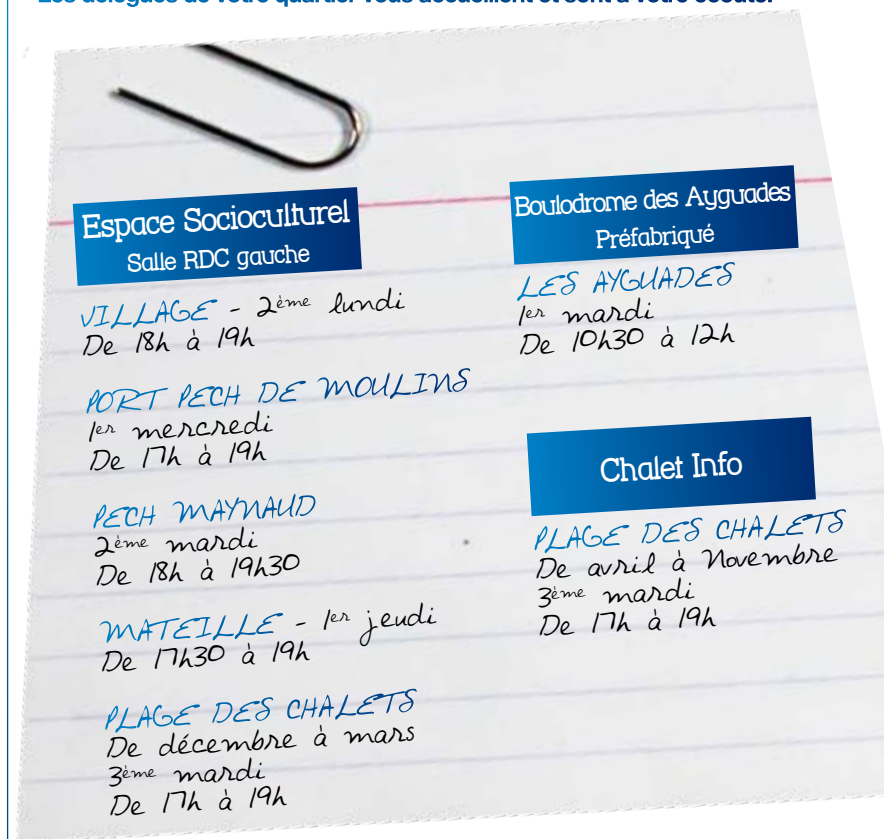 Les délégués de votre quartier vous accueillent et sont à votre écoute.
Espace Socioculturel
Salle RDC gauche
VILLAGE - 2ème lundi
De 18h à 19h
PORT PECH DE MOULINS
1er mercredi
De 17h à 19h
PECH MAYNAUD
2ème mardi
De 18h à 19h30
MATEILLE - 1er jeudi
De 17h30 à 19h
PLAGE DES CHALETS
De décembre à mars
3ème mardi
De 17h à 19h
Boulodrome des Ayguades
Préfabriqué
LES AYGUADES
1er mardi
De 10h30 à 12h
Chalet Info
PLAGE DES CHALETS
De avril à Novembre
3ème mardi
De 17h à 19h